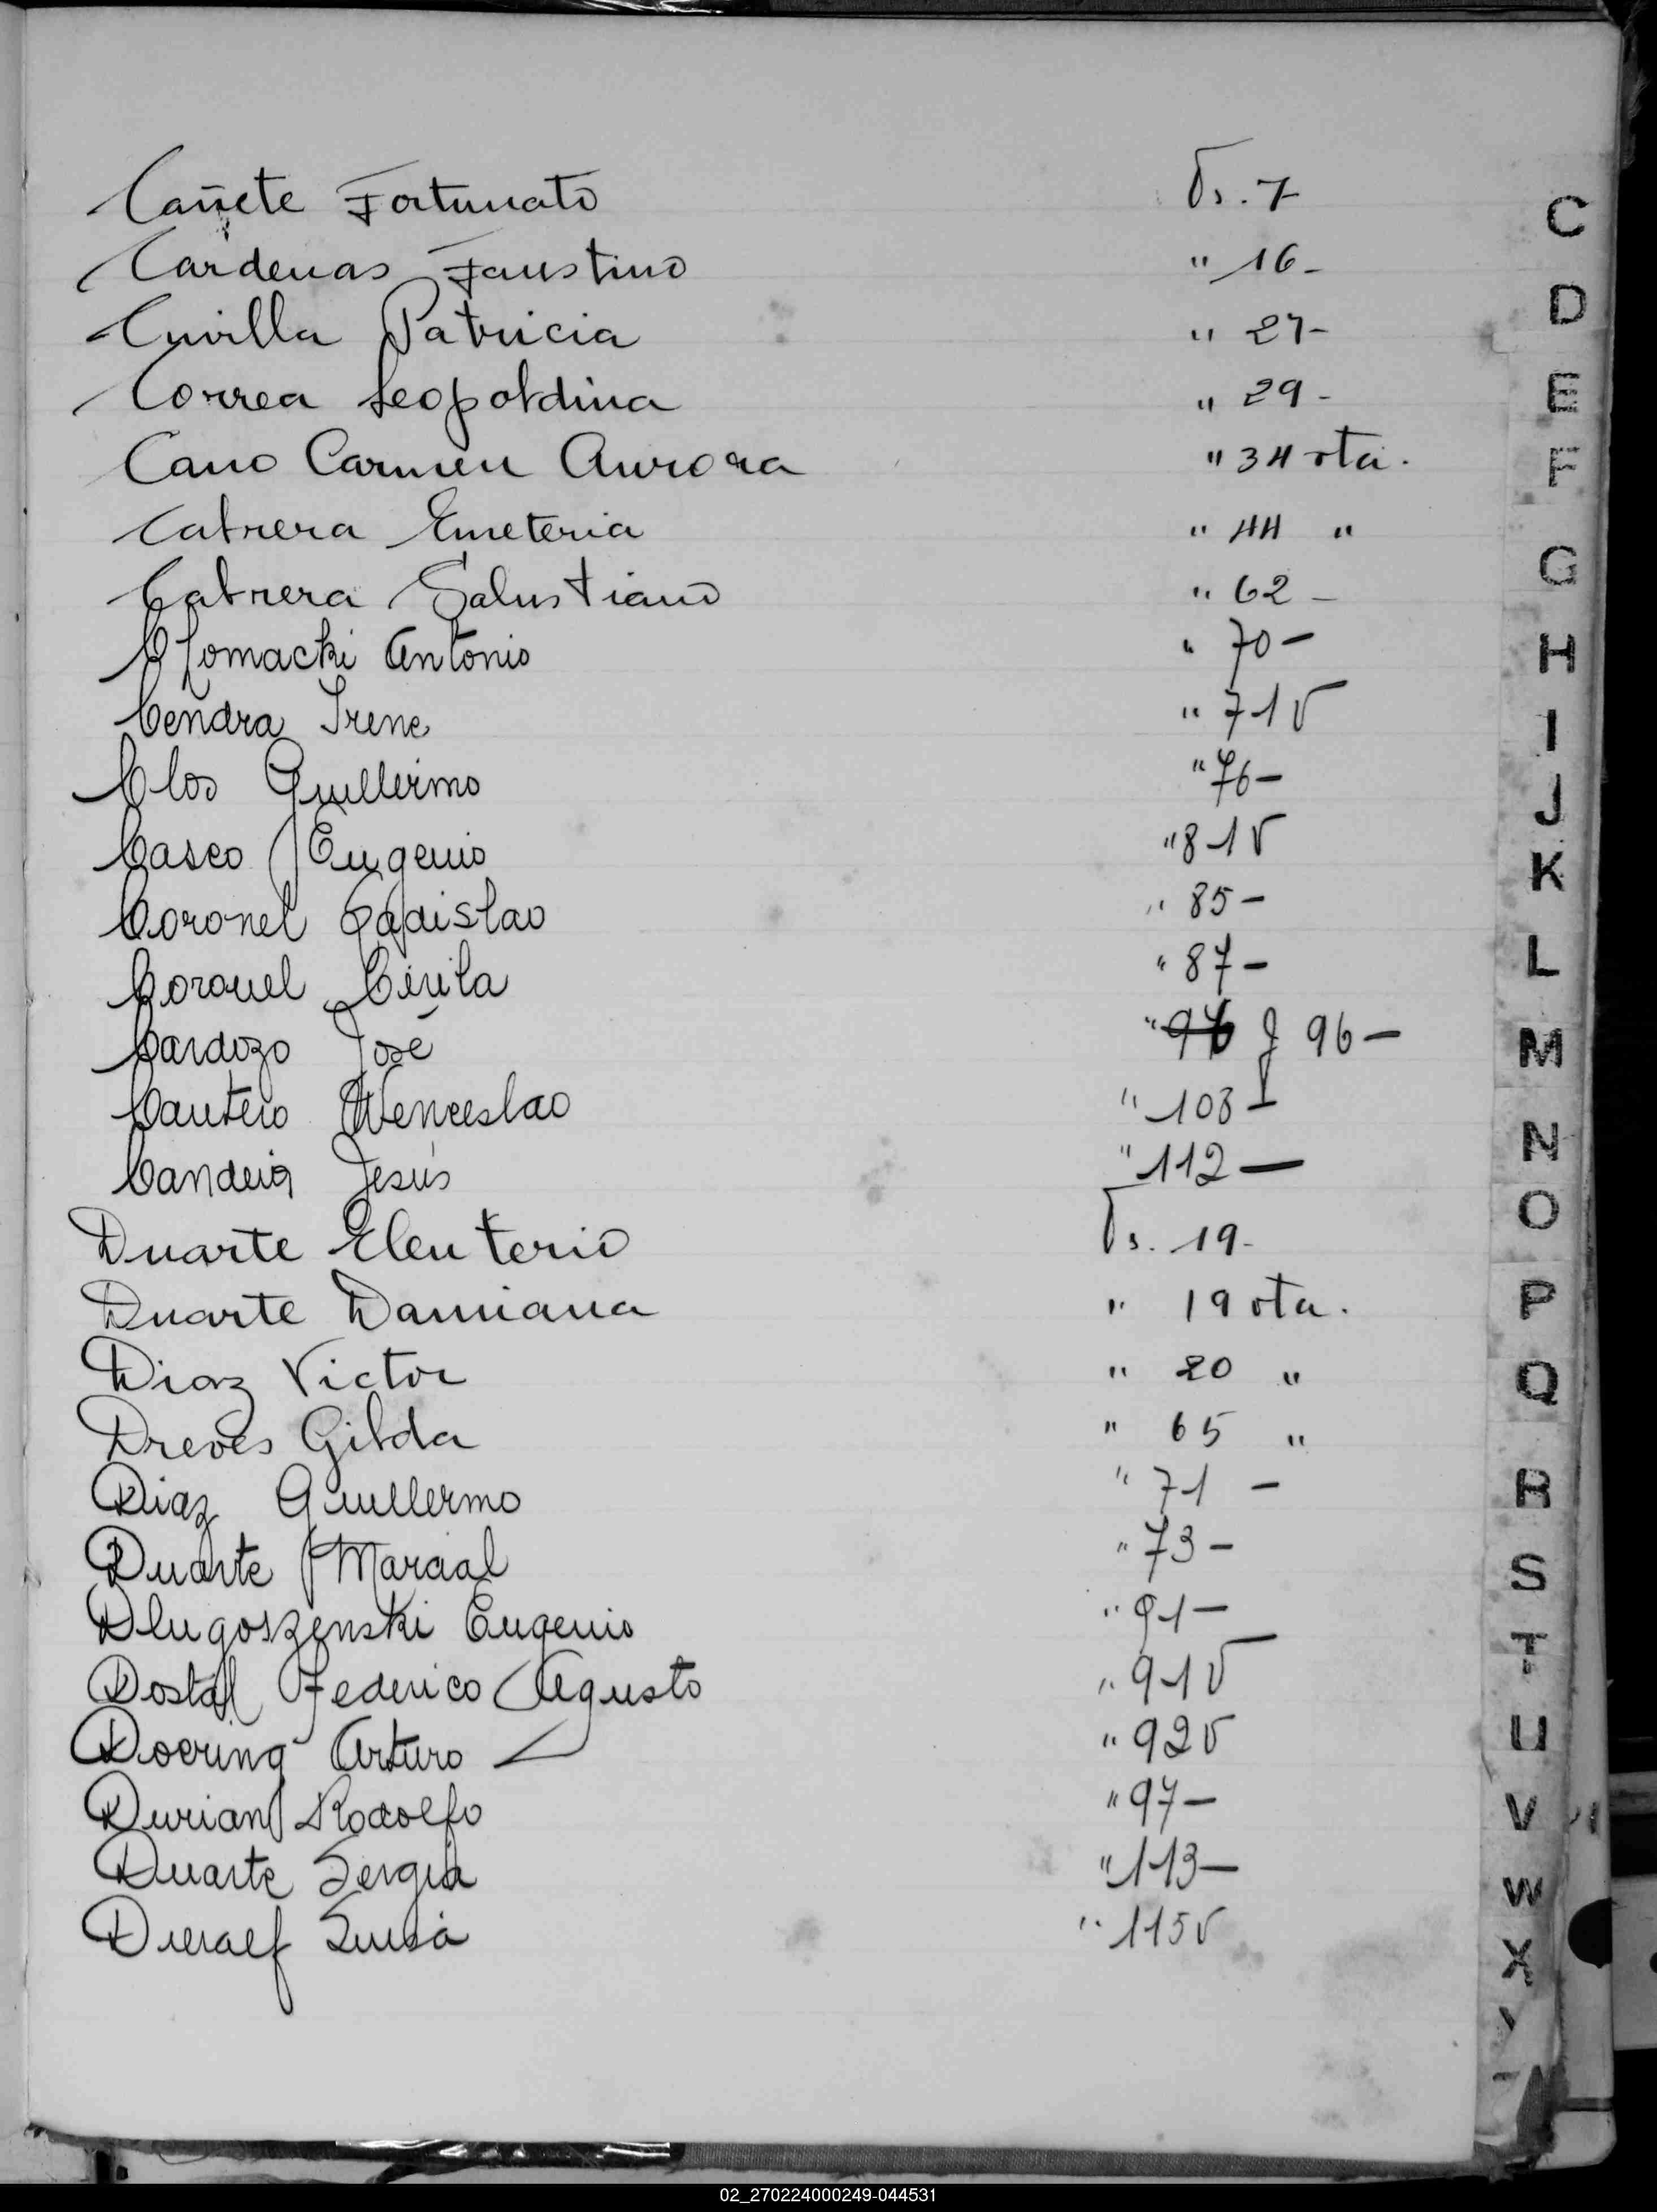 Cañete Fortunato Fs. 7
Cardenas Faustino " 16-
Cuvilla Patricia " 27-
Correa Leopoldina " 29-
Cano Carmen Aurora " 34 vta.
Cabrera Emeteria " 44 "
Cabrera Salustiano " 62-
Antonio " 70-
Cendra Irene " 71 v
Clos Guillermo " 76-
Casco Eugenio " 81 v
Coronel Ladislao " 85-
Coronel Cirila " 87-
Cardozo José " 96-
Cantero Wenceslao " 103-
Candeia Jesús " 112-
Duarte Eleuterio Fs. 19-
Duarte Damiana " 19 vta.
Diaz Victor " 20 "
Dreves Gilda " 65 "
Diaz Guillermo " 71-
Duarte Marcial " 73-
Dlugoszenski Eugenio " 91-
Dostal Federico Agusto " 91 v
Doering Arturo " 92 v
Durian Rodolfo " 97-
Duarte Sergia " 113-
Luisa " 115 v
C
D
E
F
G
H
I
J
K
L
M
N
O
P
Q
R
S
T
U
V
W
X
02_270224000249-044531